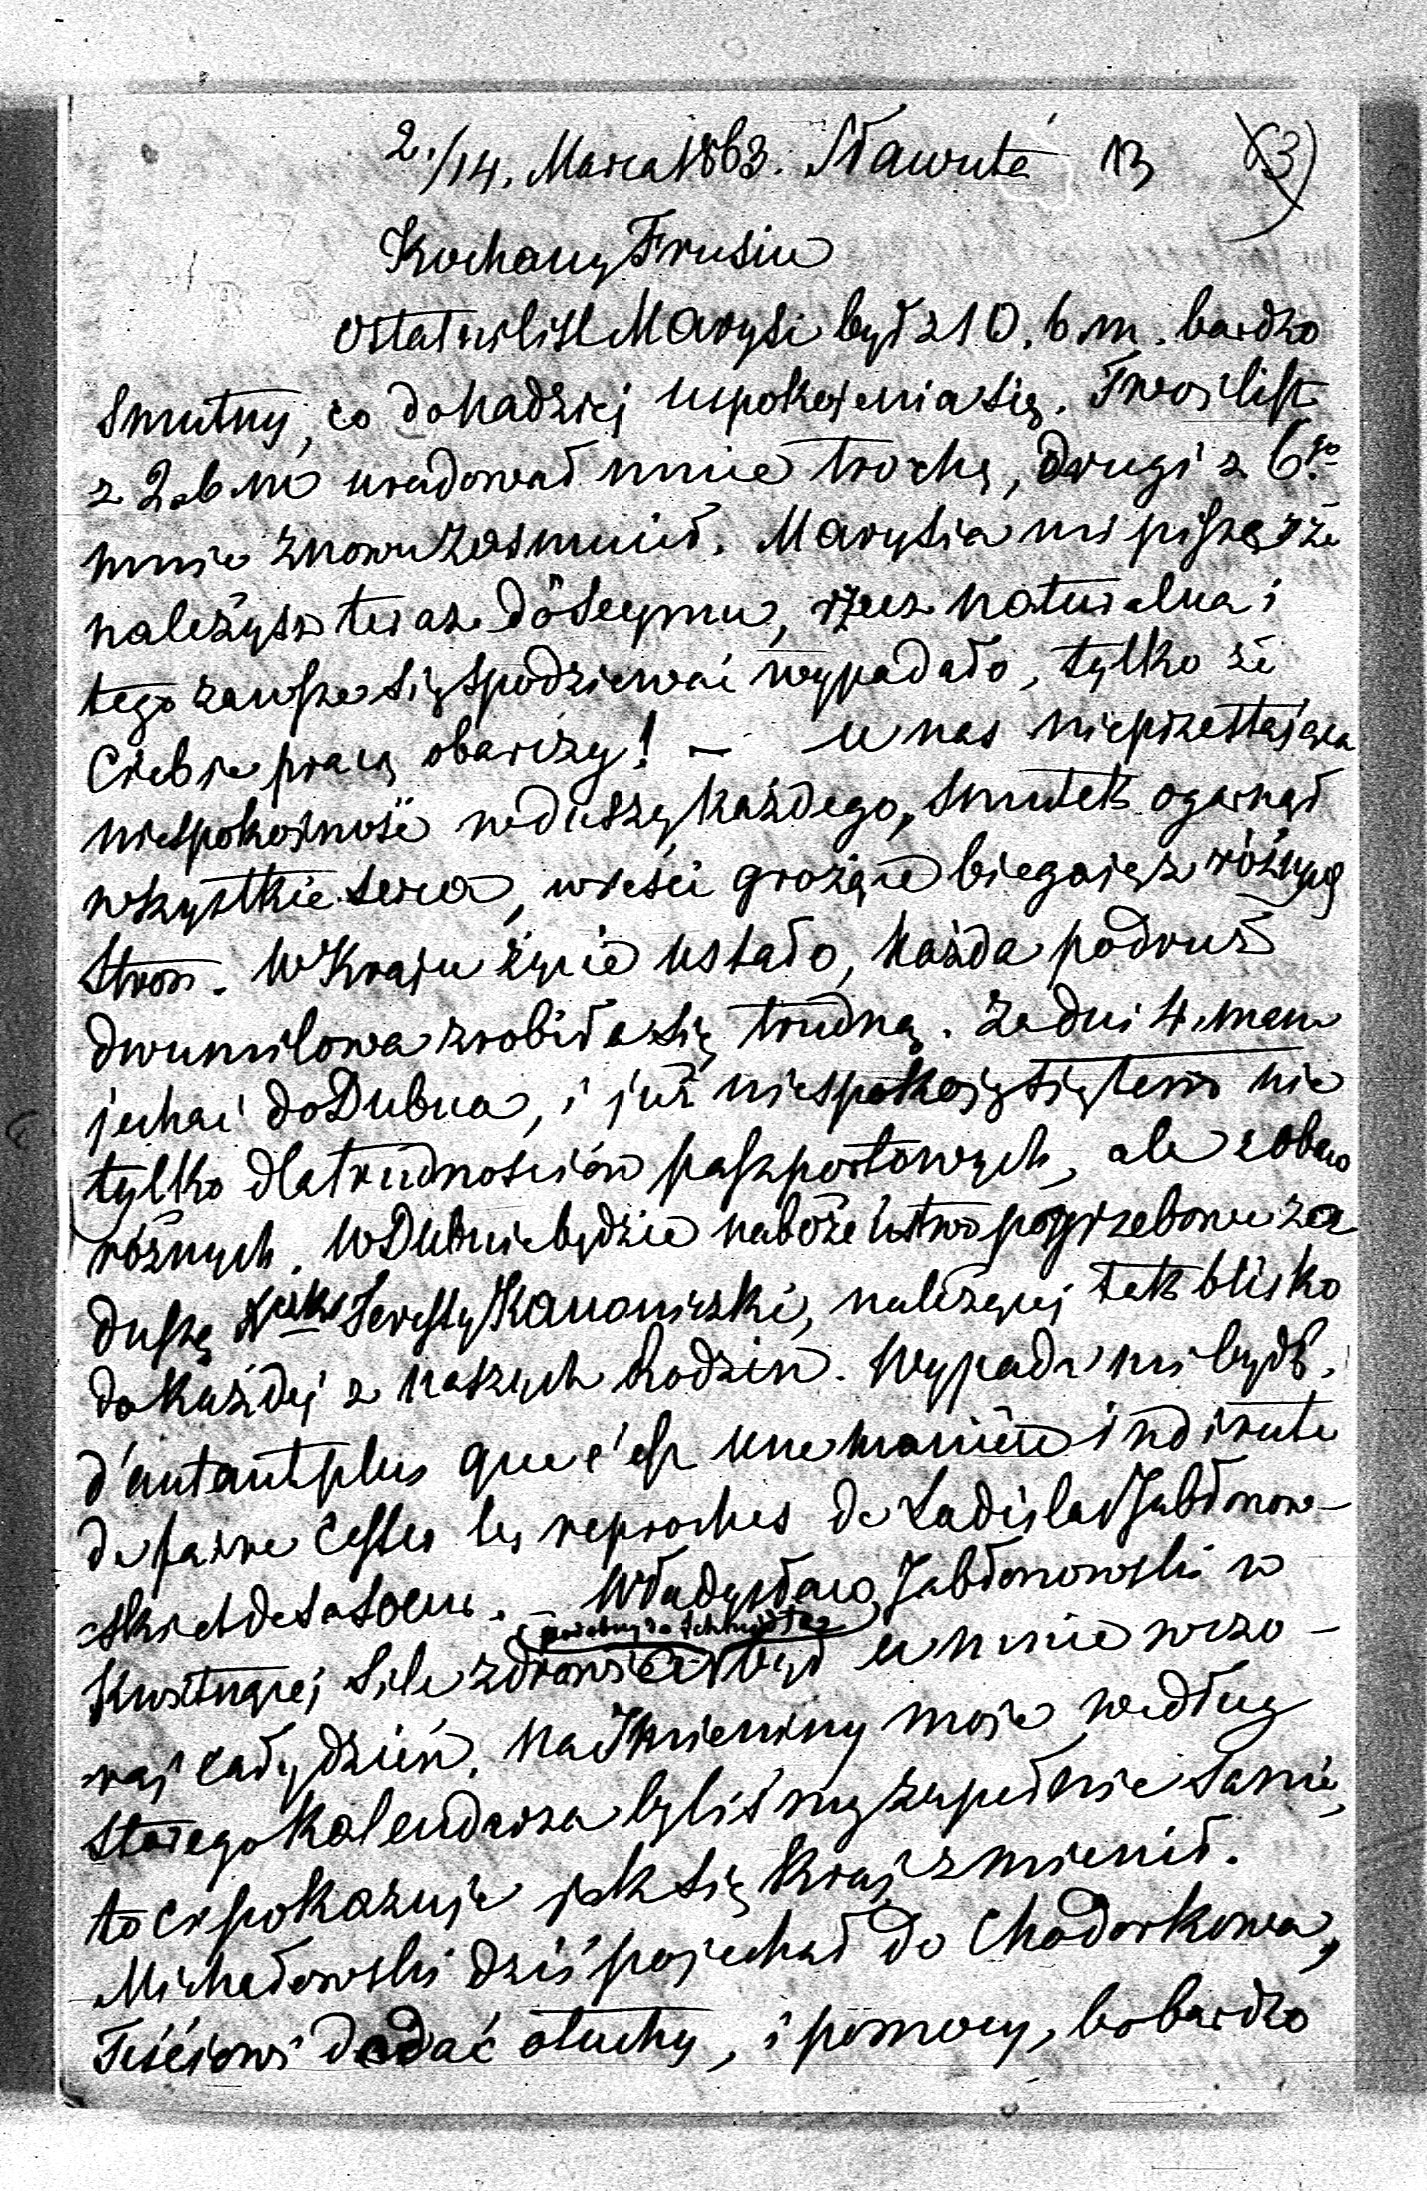 2./14. Marca 1863. Sławuta 13 (3)
Kochany Frusiu
Ostatni list Marysi był z 10. b. m. bardzo
smutny, co do nadziej uspokojenia się. Twoj list
z 2. b. m. uradował mnie trochę, drugi z 6go
mnie znowu zasmucił. Marysia mi pisze że
należysz teraz do Seymu, rzecz naturalna i
tego zawsze się spodziewać wypadało, tylko że
Ciebie pracą obarczy! — U nas nieprzestająca
niespokojność w duszy każdego, smutek ogarnął
wszystkie serca, wieści grożące biegają z różnych
stron. W Kraju życie ustało, każda podruż
dwumilowa zrobiła się trudną. Za dni 4. mam
jechać do Dubna, i już niespokoję się tem nie
tylko dla trudnościów paszportowych, ale z obaw
różnych. W Dubnie będzie nabożeństwo pogrzebowe za
duszę Seweryny Kanoniczki, należącej tak blisko
do każdej z naszych Rodzin. Wypada mi bydź,
d'autant plus que c'est une manière indirecte
de faire cesser les reproches de Ladislas Jabłonow-
ski et de sa soeur. — Władysław Jabłonowski w
kwitnącej sile zdrowia był u mnie wczo-
(podobny do
raj cały dzień. Na Imieniny moje według
starego Kalendarza byliśmy zupełnie sami,
to Ci pokazuje jak się Kraj zmienił.
Michałowski dziś pojechał do Chodorkowa,
Teściowi dodać otuchy, i pomocy, bo bardzo